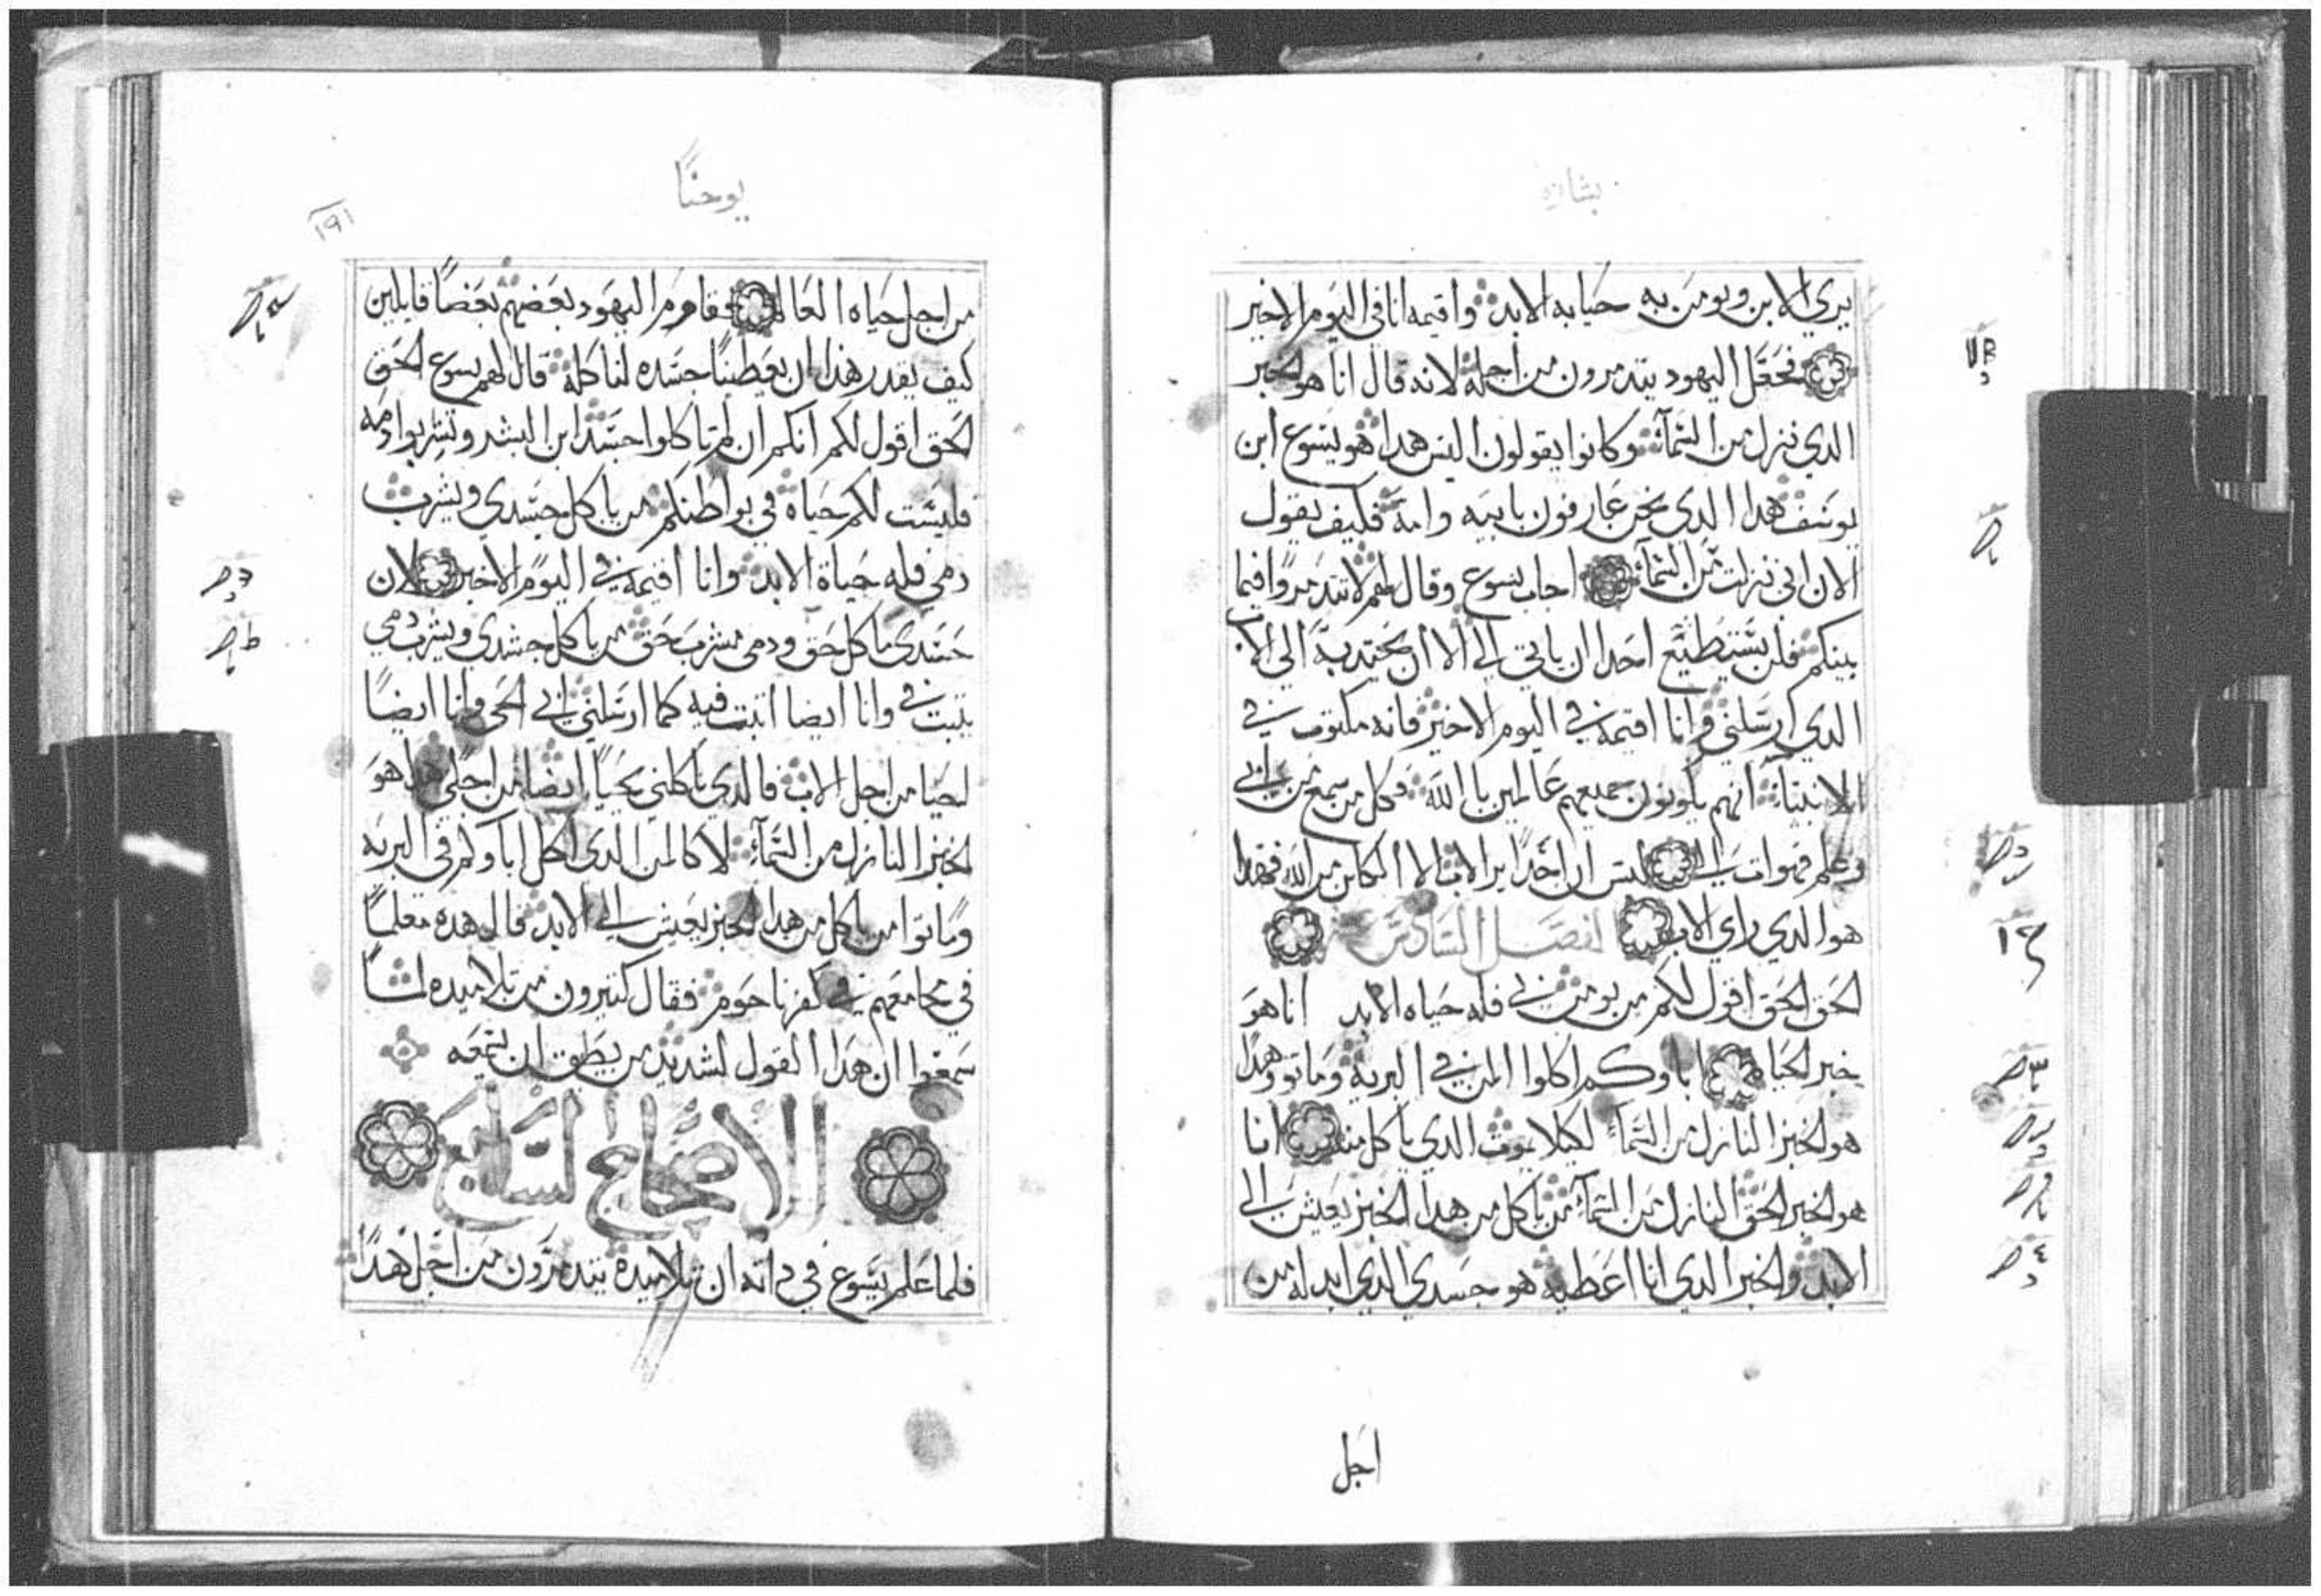 بشارة
يري الابن ويومن به حياه الابد واقيمه انا في اليوم الاخير
فجعل اليهود يتدمرون من اجله لانه قال انا هو الخبر
الدي نزل من السماء وكانوا يقولون اليس هدا هو يسوع ابن
يوسف هدا الدي نحن عارفون بابيه وامه فكيف يقول
الان اني نزلت من السماء اجاب يسوع وقال لهم لا تتدمروا فيما
بينكم فلن يستطيع احدا ان ياتي الي الا ان يجتدبه الي الاب
الدي ارسلني وانا اقيمه في اليوم الاخير فانه مكتوب في
الانبياء انهم يكونون جميعهم عالمين بالله فكل من سمع من ابي
وعلم فهو ات الي ليس ان احدا يرا الاب الا الكاين من الله فهدا
هو الدي راي الاب الفصل السادس
الحق الحق اقول لكم من يومن بي فله حياه الابد انا هو
خبز الحياه اباوكم اكلوا المن في البريه وماتوا وهدا
هو الخبز النازل من السماء لكيلا يموت الدي ياكل منه انا
هو الخبز الحق النازل من السماء من ياكل من هدا الخبز يعيش الي
الابد والخبز الدي انا اعطيه هو جسدي الدي ابدله من
اجل
يوحنا
١٩١
من اجل حياه العالم فقاوم اليهود بعضهم بعضا قايلين
كيف يقدر هدا ان يعطينا جسده لناكله قال لهم يسوع الحق
الحق اقول لكم انكم ان لم تاكلوا جسد ابن البشر وتشربوا دمه
فليست لكم حياة في بواطنكم من ياكل جسدي ويشرب
دمي فله حياة الابد وانا اقيمه في اليوم الاخير لان
جسدي ماكل حق ودمي مشرب حق من ياكل جسدي ويشرب دمي
يثبت في وانا ايضا اثبت فيه كما ارسلني ابي الحي وانا ايضا
احيا من اجل الاب فالدي ياكلني يحيا ايضا من اجلي هدا هو
الخبز النازل من السماء لا كالمن الدي اكل اباوكم في البريه
وماتوا من ياكل من هدا الخبز يعيش الي الابد قال هده معلما
في مجامعهم في كفرناحوم فقال كثيرون من تلاميده لما
سمعوا ان هدا القول لشديد من يطيق ان يسمعه
الاصحاح السابع
فلما علم يسوع في داته ان تلاميده يتدمرون من اجل هدا